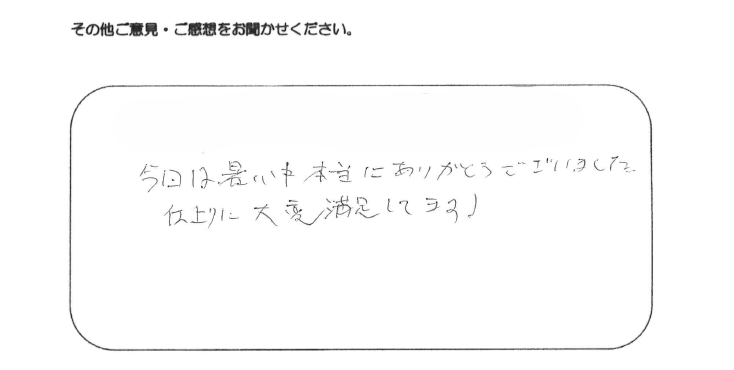 その他ご意見・ご感想をお聞かせください。
今日は暑い中本当にありがとうございました。
仕上りに大変満足してます!